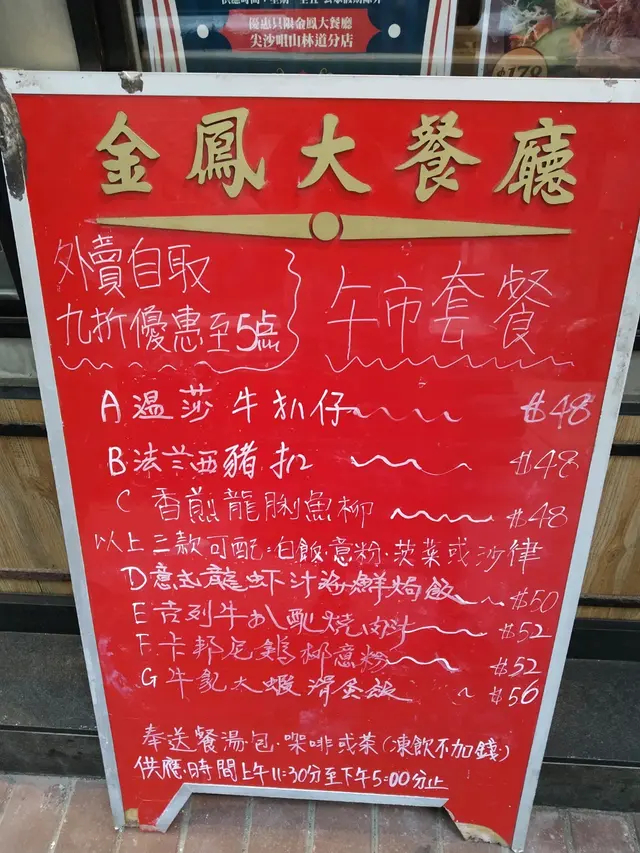 優惠只限金鳳大餐廳
尖沙咀山林道分店
$179
金鳳大餐廳
外賣自取
九折優惠至5点
午市套餐
A 温莎牛扒仔 $48
B 法兰西豬扒 $48
C 香煎龍脷魚柳 $48
以上三款可配:白飯·意粉·茨菜或沙律
D 意式龍虾汁海鮮焗飯 $50
E 吉列牛扒配燒肉汁 $52
F 卡邦尼鷄柳意粉 $52
G 牛氣大蝦滑蛋飯 $56
奉送餐湯·包·架啡或茶(凍飲不加錢)
供應時間上午11:30分至下午5:00分止